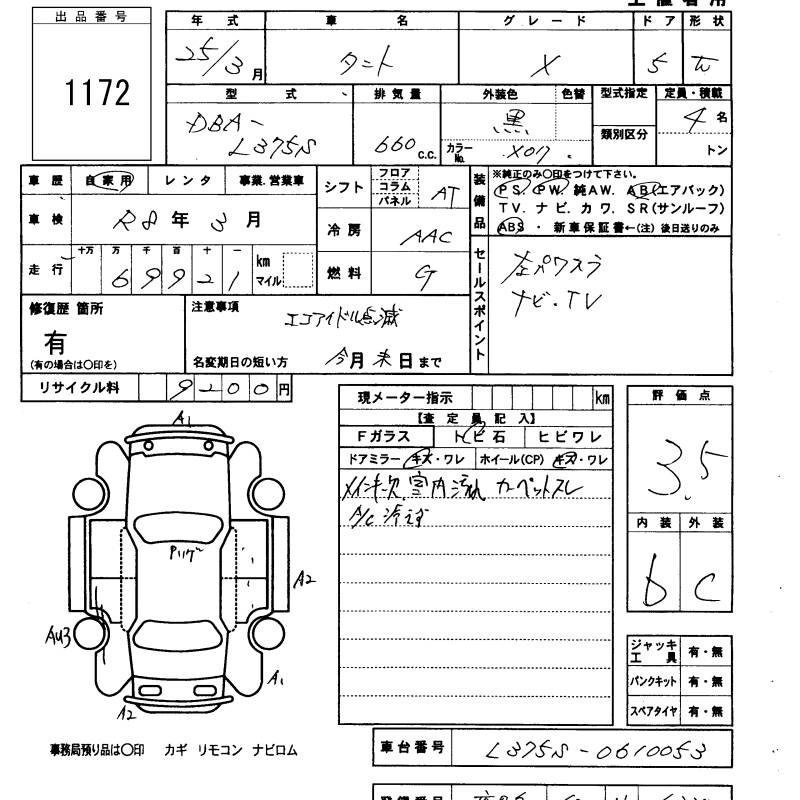 出品番号
1172
年式 車名 グレード ドア 形状
25/3月 タント X 5
型式 排気量 外装色 色替 型式指定 定員・積載
DBA-L375S 660c.c. 黒 カラーNo. X07 類別区分 4名 トン
車歴 自家用 レンタ 事業.営業車
車検 R8年3月
走行 十万 万 千 百 十 一
69921 km マイル
シフト フロア コラム パネル AT
冷房 AAC
燃料 G
装備品 ※純正のみ〇印をつけて下さい。
PS. PW. 純AW. AB(エアバック)
TV. ナビ. カワ. SR(サンルーフ)
ABS ・ 新車保証書←(注) 後日送りのみ
セールスポイント
左パワスラ
ナビ・TV
修復歴 箇所
有
(有の場合は〇印を)
注意事項
エコアイドル点滅
名変期日の短い方 今月末日まで
リサイクル料 9200円
現メーター指示 km
【査定員記入】
Fガラス トビ石 ヒビワレ
ドアミラー キズ・ワレ ホイール(CP) キズ・ワレ
メインキー欠 室内汚れ カーペットスレ
A/C 冷えず
評価点
3.5
内装 外装
b C
A1
Pリゲー
A2
AU3
A1
A2
ジャッキ工具 有・無
パンクキット 有・無
スペアタイヤ 有・無
事務局預り品は〇印 カギ リモコン ナビロム
車台番号 L375S-0610053